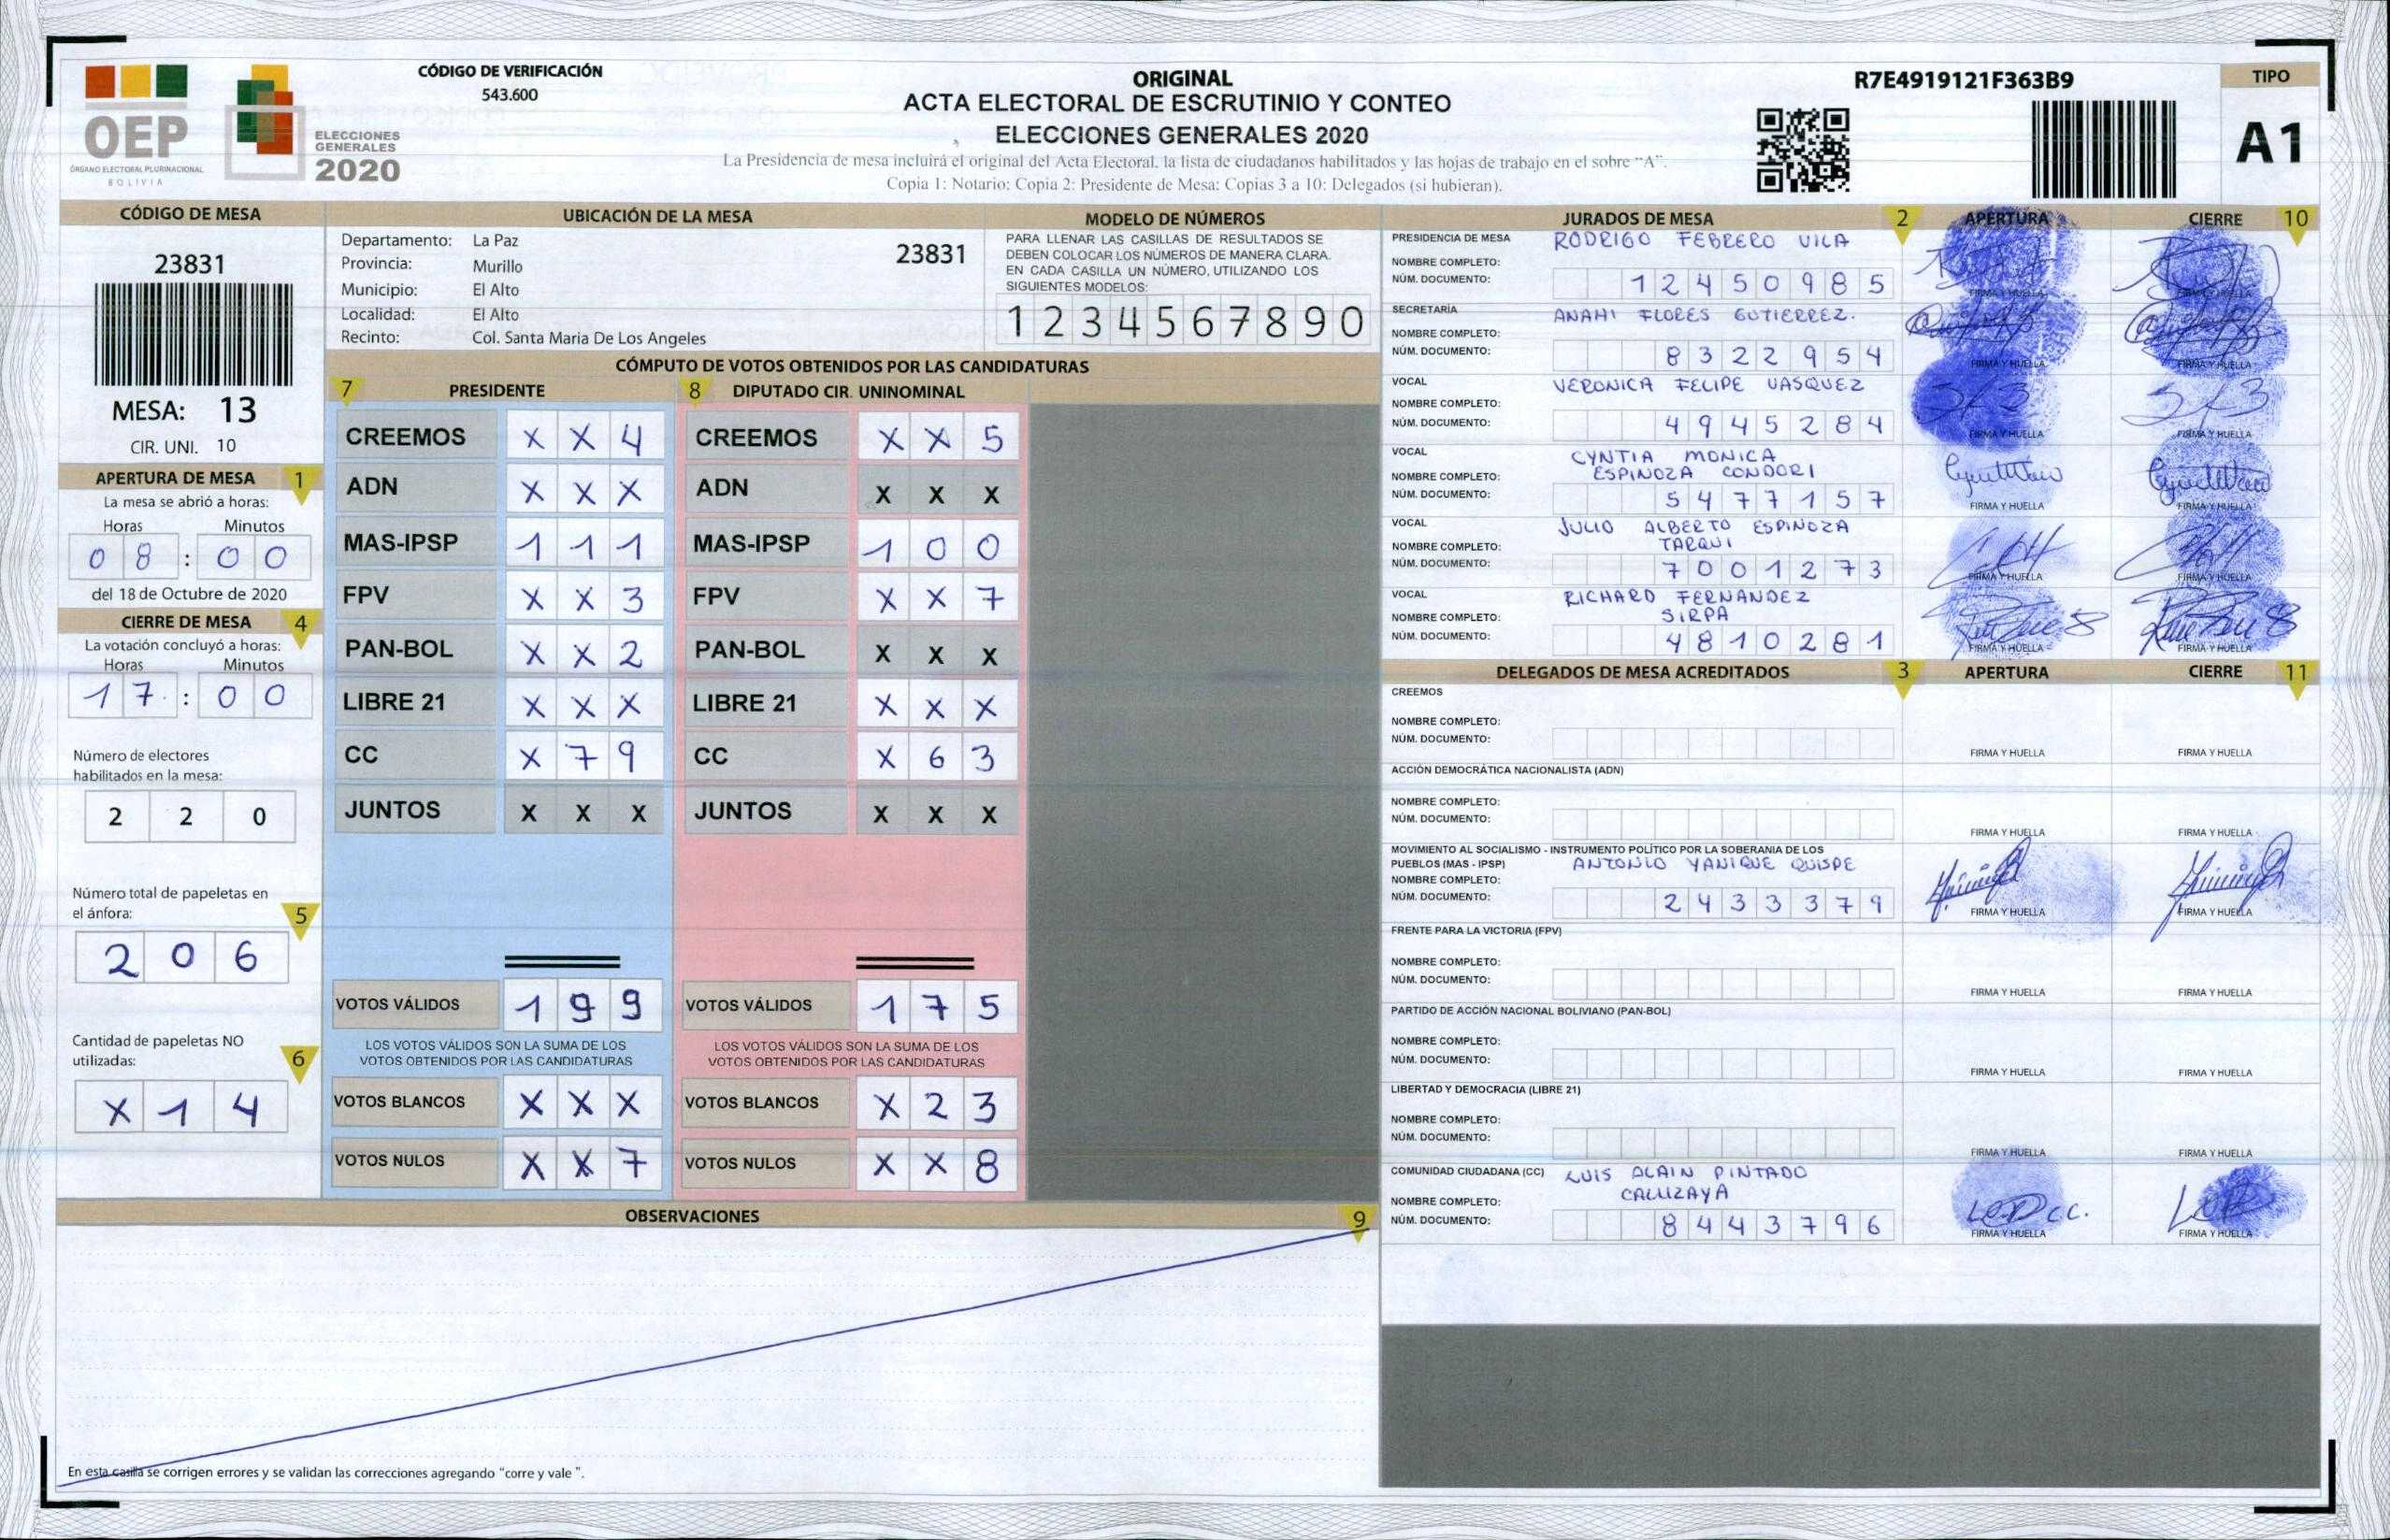 OEP
ÓRGANO ELECTORAL PLURINACIONAL
BOLIVIA
ELECCIONES
GENERALES
2020
CÓDIGO DE VERIFICACIÓN
543.600
ORIGINAL
ACTA ELECTORAL DE ESCRUTINIO Y CONTEO
ELECCIONES GENERALES 2020
La Presidencia de mesa incluirá el original del Acta Electoral, la lista de ciudadanos habilitados y las hojas de trabajo en el sobre “A”.
Copia 1: Notario; Copia 2: Presidente de Mesa; Copias 3 a 10: Delegados (si hubieran).
R7E4919121F363B9
TIPO
A1
CÓDIGO DE MESA
23831
MESA: 13
CIR. UNI. 10
APERTURA DE MESA 1
La mesa se abrió a horas:
Horas Minutos
0 8 : 0 0
del 18 de Octubre de 2020
CIERRE DE MESA 4
La votación concluyó a horas:
Horas Minutos
1 7 : 0 0
Número de electores
habilitados en la mesa:
2 2 0
Número total de papeletas en
el ánfora: 5
2 0 6
Cantidad de papeletas NO
utilizadas: 6
X 1 4
UBICACIÓN DE LA MESA
Departamento: La Paz 23831
Provincia: Murillo
Municipio: El Alto
Localidad: El Alto
Recinto: Col. Santa Maria De Los Angeles
MODELO DE NÚMEROS
PARA LLENAR LAS CASILLAS DE RESULTADOS SE
DEBEN COLOCAR LOS NÚMEROS DE MANERA CLARA.
EN CADA CASILLA UN NÚMERO, UTILIZANDO LOS
SIGUIENTES MODELOS:
1 2 3 4 5 6 7 8 9 0
CÓMPUTO DE VOTOS OBTENIDOS POR LAS CANDIDATURAS
7 PRESIDENTE 8 DIPUTADO CIR. UNINOMINAL
CREEMOS X X 4 CREEMOS X X 5
ADN X X X ADN X X X
MAS-IPSP 1 1 1 MAS-IPSP 1 0 0
FPV X X 3 FPV X X 7
PAN-BOL X X 2 PAN-BOL X X X
LIBRE 21 X X X LIBRE 21 X X X
CC X 7 9 CC X 6 3
JUNTOS X X X JUNTOS X X X
VOTOS VÁLIDOS 1 9 9 VOTOS VÁLIDOS 1 7 5
LOS VOTOS VÁLIDOS SON LA SUMA DE LOS LOS VOTOS VÁLIDOS SON LA SUMA DE LOS
VOTOS OBTENIDOS POR LAS CANDIDATURAS VOTOS OBTENIDOS POR LAS CANDIDATURAS
VOTOS BLANCOS X X X VOTOS BLANCOS X 2 3
VOTOS NULOS X X 7 VOTOS NULOS X X 8
OBSERVACIONES 9
En esta casilla se corrigen errores y se validan las correcciones agregando “corre y vale ”.
JURADOS DE MESA 2 APERTURA CIERRE 10
PRESIDENCIA DE MESA RODRIGO FEBRERO VILA
NOMBRE COMPLETO:
NÚM. DOCUMENTO: 1 2 4 5 0 9 8 5 FIRMA Y HUELLA FIRMA Y HUELLA
SECRETARÍA ANAHI FLORES GUTIERREZ.
NOMBRE COMPLETO:
NÚM. DOCUMENTO: 8 3 2 2 9 5 4 FIRMA Y HUELLA FIRMA Y HUELLA
VOCAL VERONICA FELIPE VASQUEZ
NOMBRE COMPLETO:
NÚM. DOCUMENTO: 4 9 4 5 2 8 4 FIRMA Y HUELLA FIRMA Y HUELLA
VOCAL CYNTIA MONICA
NOMBRE COMPLETO: ESPINOZA CONDORI
NÚM. DOCUMENTO: 5 4 7 7 1 5 7 FIRMA Y HUELLA FIRMA Y HUELLA
VOCAL JULIO ALBERTO ESPINOZA
NOMBRE COMPLETO: TARQUI
NÚM. DOCUMENTO: 7 0 0 1 2 7 3 FIRMA Y HUELLA FIRMA Y HUELLA
VOCAL RICHARD FERNANDEZ
NOMBRE COMPLETO: SIRPA
NÚM. DOCUMENTO: 4 8 1 0 2 8 1 FIRMA Y HUELLA FIRMA Y HUELLA
DELEGADOS DE MESA ACREDITADOS 3 APERTURA CIERRE 11
CREEMOS
NOMBRE COMPLETO:
NÚM. DOCUMENTO: FIRMA Y HUELLA FIRMA Y HUELLA
ACCIÓN DEMOCRÁTICA NACIONALISTA (ADN)
NOMBRE COMPLETO:
NÚM. DOCUMENTO: FIRMA Y HUELLA FIRMA Y HUELLA
MOVIMIENTO AL SOCIALISMO - INSTRUMENTO POLÍTICO POR LA SOBERANIA DE LOS
PUEBLOS (MAS - IPSP) ANTONIO YANIQUE QUISPE
NOMBRE COMPLETO:
NÚM. DOCUMENTO: 2 4 3 3 3 7 9 FIRMA Y HUELLA FIRMA Y HUELLA
FRENTE PARA LA VICTORIA (FPV)
NOMBRE COMPLETO:
NÚM. DOCUMENTO: FIRMA Y HUELLA FIRMA Y HUELLA
PARTIDO DE ACCIÓN NACIONAL BOLIVIANO (PAN-BOL)
NOMBRE COMPLETO:
NÚM. DOCUMENTO: FIRMA Y HUELLA FIRMA Y HUELLA
LIBERTAD Y DEMOCRACIA (LIBRE 21)
NOMBRE COMPLETO:
NÚM. DOCUMENTO: FIRMA Y HUELLA FIRMA Y HUELLA
COMUNIDAD CIUDADANA (CC) LUIS ALAIN PINTADO
NOMBRE COMPLETO: CALLIZAYA
NÚM. DOCUMENTO: 8 4 4 3 7 9 6 FIRMA Y HUELLA FIRMA Y HUELLA